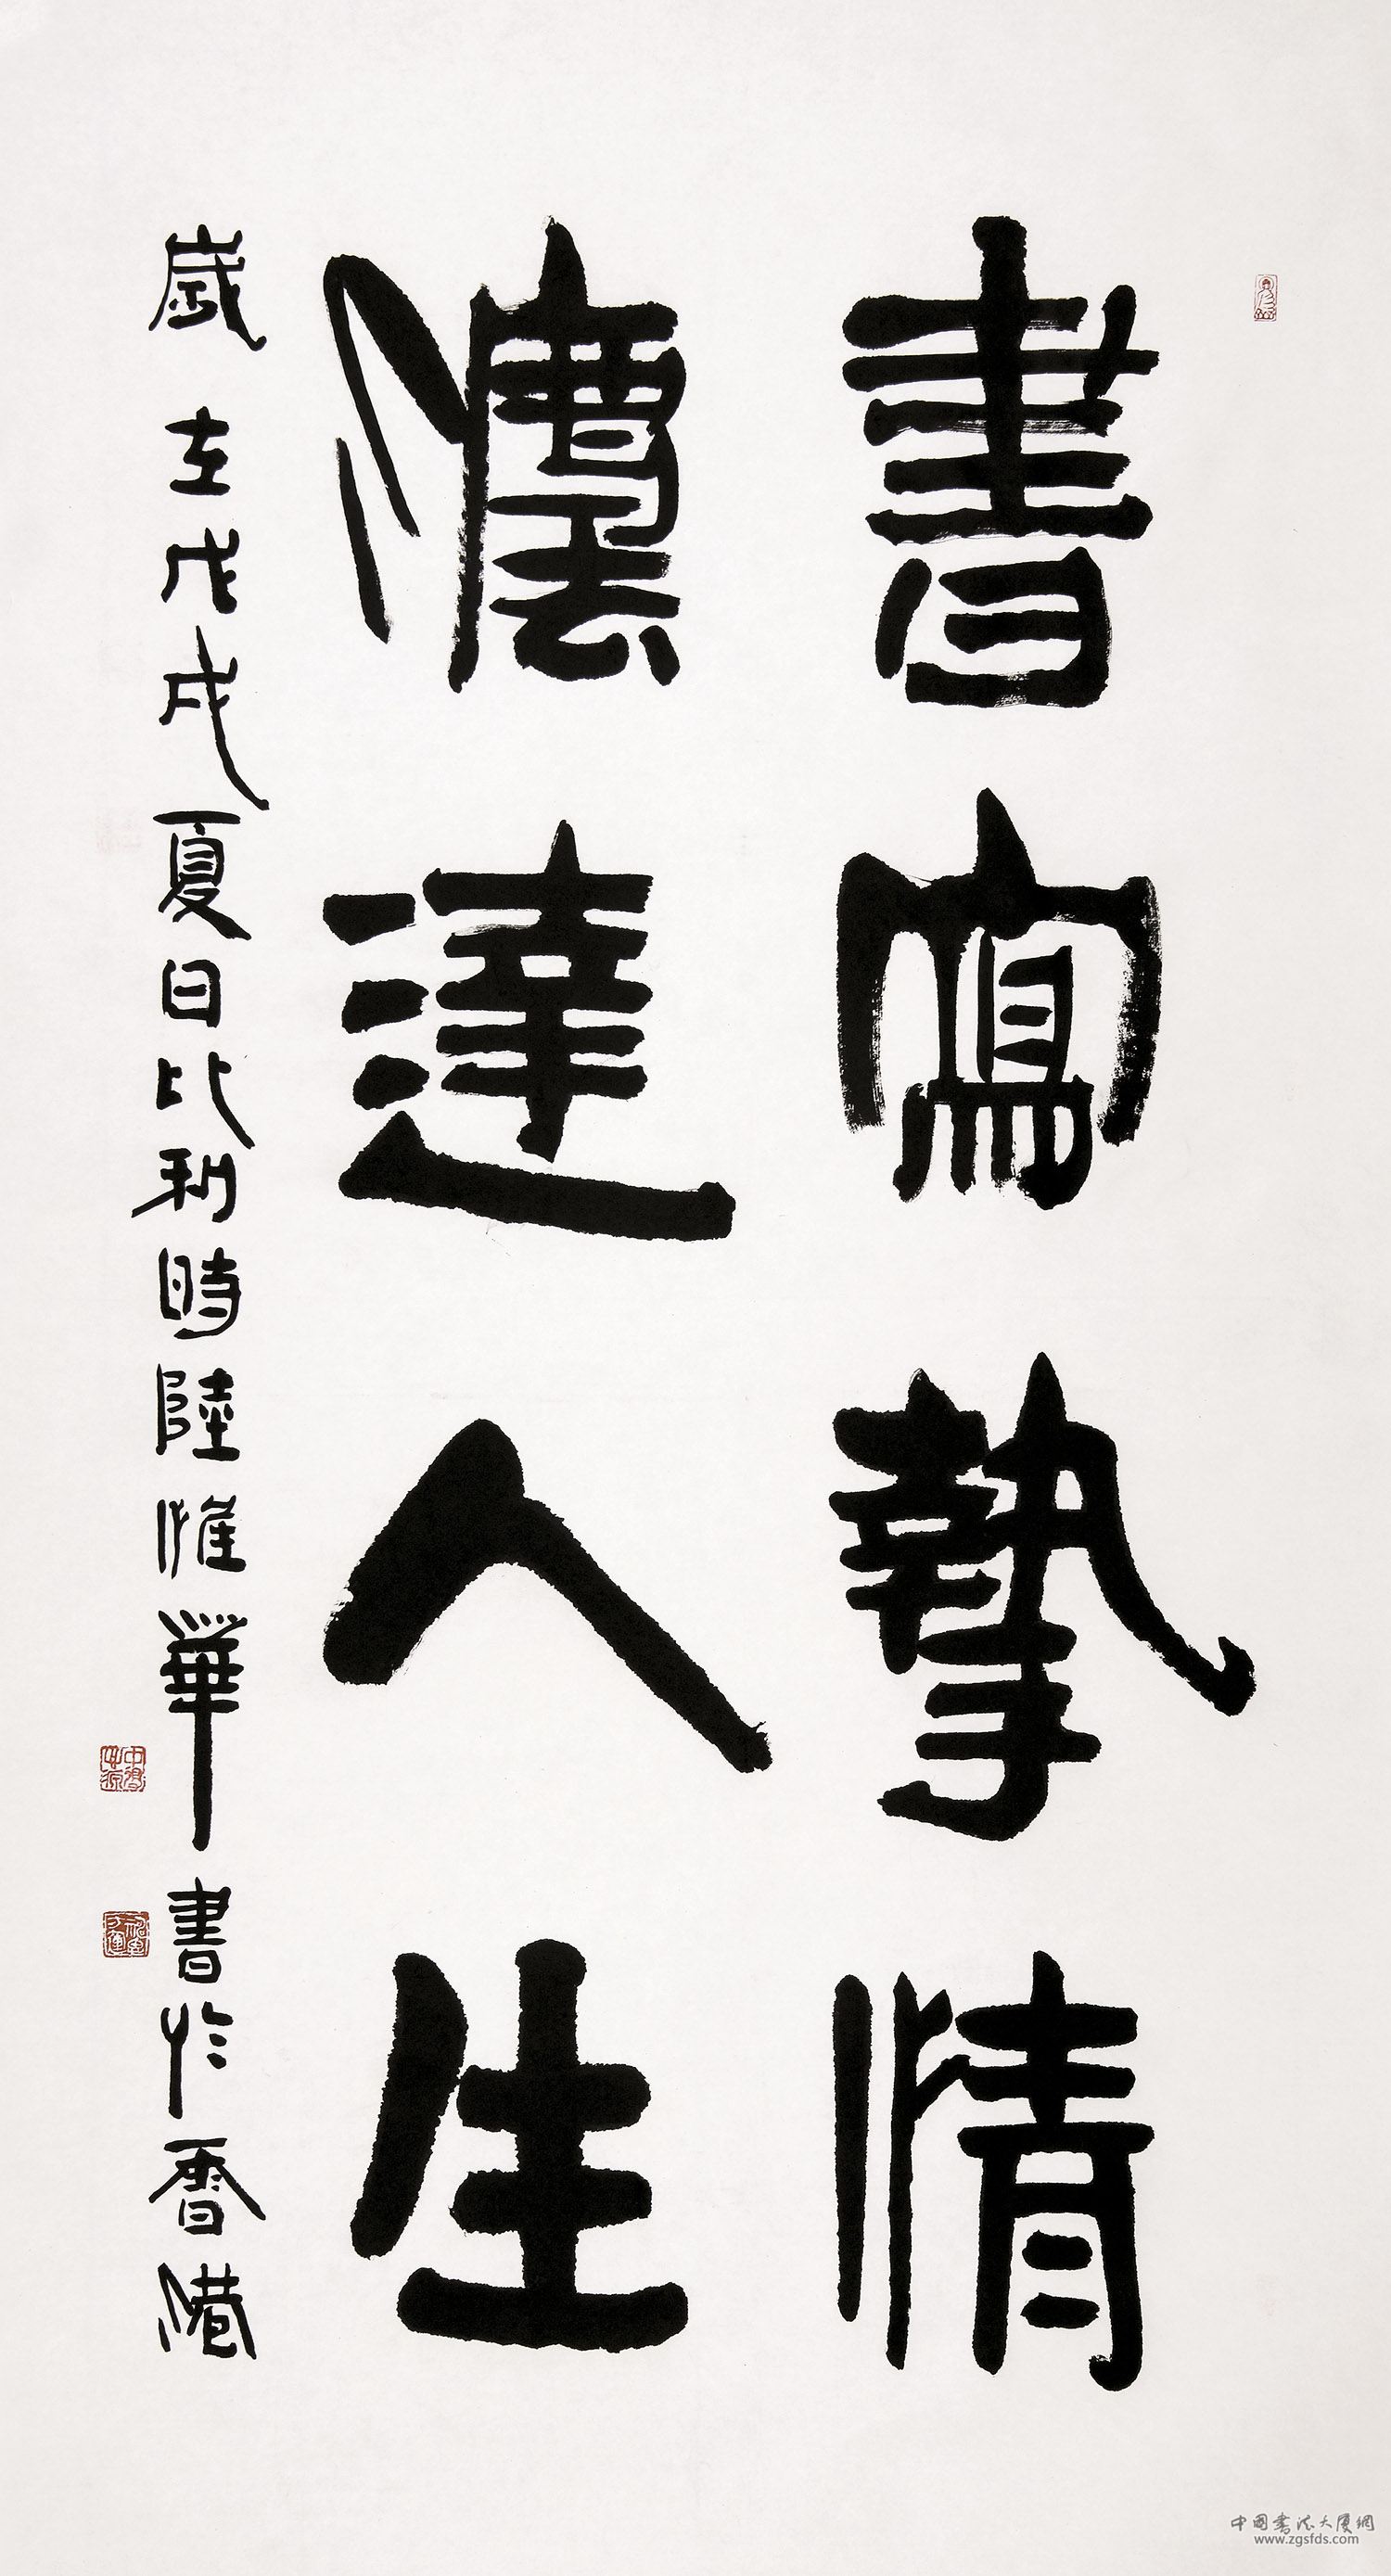 書寫摯情
灋達人生
歲在戊戌夏日比利時陸惟華書於香港
中國書法大廈網
www.zgsfds.com